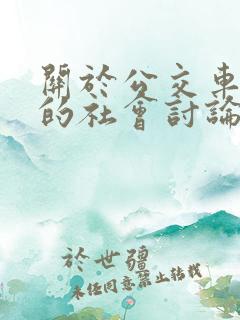 關於公交車
的社會討論
於世疆
未经同意禁止转载